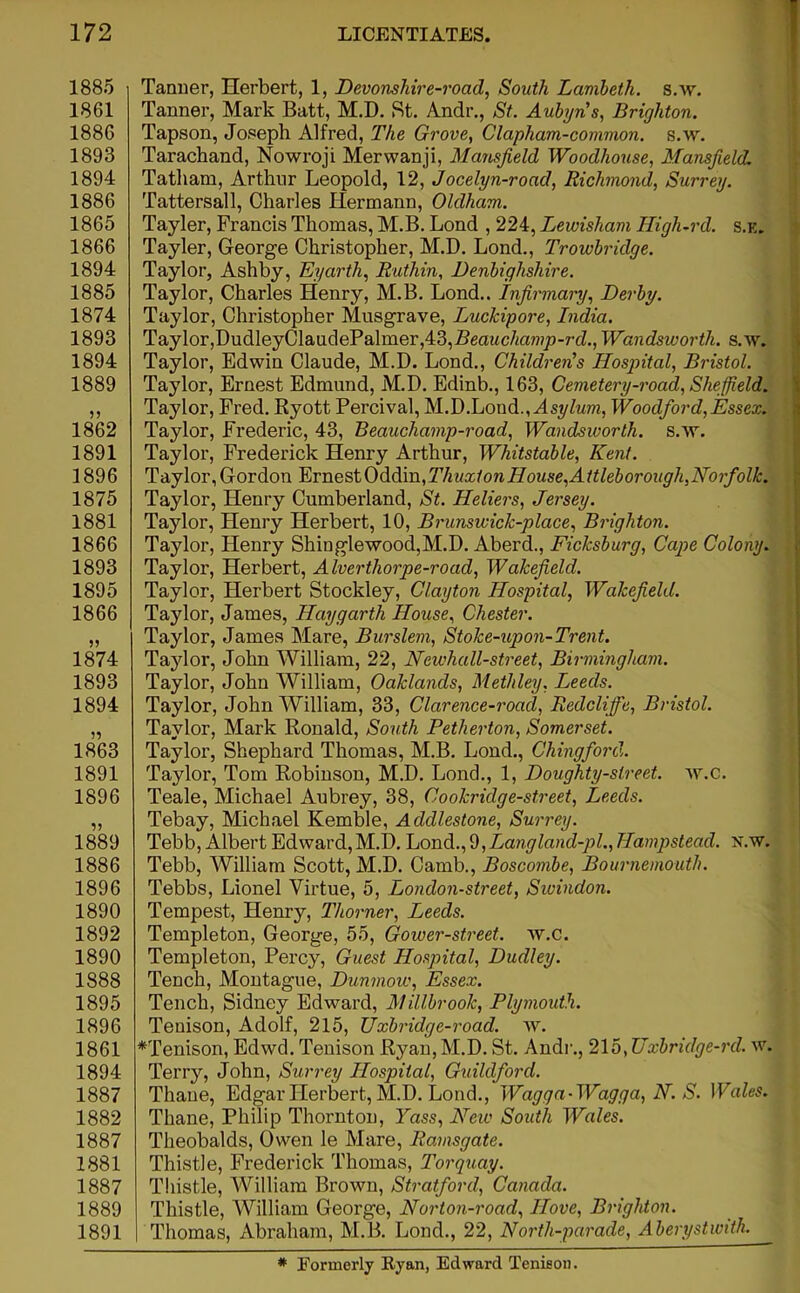 172 LICENTIATES.
1885 Tanner, Herbert, 1, Devonshire-road, South Lambeth. S.W.
1861 Tanner, Mark Batt, M.D. St. Andr., St. Aubyn's, Brighton.
1886 Tapson, Joseph Alfred, The Grove, Clapham-common. S.W.
1893 Tarachand, Nowroji Merwanji, Mansfield Woodhouse, Mansfield.
1894 Tatham, Arthur Leopold, 12, Jocelyn-road, Richmond, Surrey.
1886 Tattersall, Charles Hermann, Oldham.
1865 Tayler, Francis Thomas, M.B. Lond , 224, Lewisham High-rd. S.E.
1866 Tayler, George Christopher, M.D. Lond., Trowbridge.
1894 Taylor, Ashby, Eyarth, Ruthin, Denbighshire.
1885 Taylor, Charles Henry, M.B. Lond.. Infirmary, Derby.
1874 Taylor, Christopher Musgrave, Luckipore, India.
1893 Taylor,DudleyClaudePalmer,43,Beauchamp-rd.,Wandsworth. S.W.
1894 Taylor, Edwin Claude, M.D. Lond., Children's Hospital, Bristol.
1889 Taylor, Ernest Edmund, M.D. Edinb., 163, Cemetery-road, Sheffield.
„ Taylor, Fred. Ryott Percival, M.D.Lond.,Asylum, Woodford,Essex.
1862 Taylor, Frederic, 43, Beauchamp-road, Wandsworth. S.W.
1891 Taylor, Frederick Henry Arthur, Whitstable, Kent.
1896 Taylor,Gordon ErnestOddin,ThuxtonHouse,Attleborough,Norfolk.
1875 Taylor, Henry Cumberland, St. Heliers, Jersey.
1881 Taylor, Henry Herbert, 10, Brunswick-place, Brighton.
1866 Taylor, Henry Shinglewood,M.D. Aberd., Ficksburg, Cape Colony.
1893 Taylor, Herbert, Alverthorpe-road, Wakefield.
1895 Taylor, Herbert Stockley, Clayton Hospital, Wakefield.
1866 Taylor, James, Haygarth House, Chester.
„ Taylor, James Mare, Burslem, Stoke-upon-Trent.
1874 Taylor, John William, 22, Newhall-street, Birmingham.
1893 Taylor, John William, Oaklands, Methley, Leeds.
1894 Taylor, John William, 33, Clarence-road, Redcliffe, Bristol.
„ Taylor, Mark Ronald, South Petherton, Somerset.
1863 Taylor, Shephard Thomas, M.B. Lond., Chingford.
1891 Taylor, Tom Robinson, M.D. Lond., 1, Doughty-street. W.C.
1896 Teale, Michael Aubrey, 38, Cookridge-street, Leeds.
„ Tebay, Michael Kemble, Addlestone, Surrey.
1889 Tebb, Albert Edward,M.D. Lond.,9,Langland-pl.,Hampstead. N.W.
1886 Tebb, William Scott, M.D. Camb., Boscombe, Bournemouth.
1896 Tebbs, Lionel Virtue, 5, London-street, Swindon.
1890 Tempest, Henry, Thorner, Leeds.
1892 Templeton, George, 55, Gower-street. W.C.
1890 Templeton, Percy, Guest Hospital, Dudley.
1888 Tench, Montague, Dunmow, Essex.
1895 Tench, Sidney Edward, Millbrook, Plymouth.
1896 Tenison, Adolf, 215, Uxbridge-road. W.
1861 *Tenison, Edwd. Tenison Ryan, M.D. St. Andr., 215,Uxbridge-rd. W.
1894 Terry, John, Surrey Hospital, Guildford.
1887 Thane, Edgar Herbert, M.D. Lond., Wagga-Wagga, N. S. Wales.
1882 Thane, Philip Thornton, Yass, New South Wales.
1887 Theobalds, Owen le Mare, Ramsgate.
1881 Thistle, Frederick Thomas, Torquay.
1887 Thistle, William Brown, Stratford, Canada.
1889 Thistle, William George, Norton-road, Hove, Brighton.
1891 Thomas, Abraham, M.B. Lond., 22, North-parade, Aberystwith.
* Formerly Ryan, Edward Tenison.